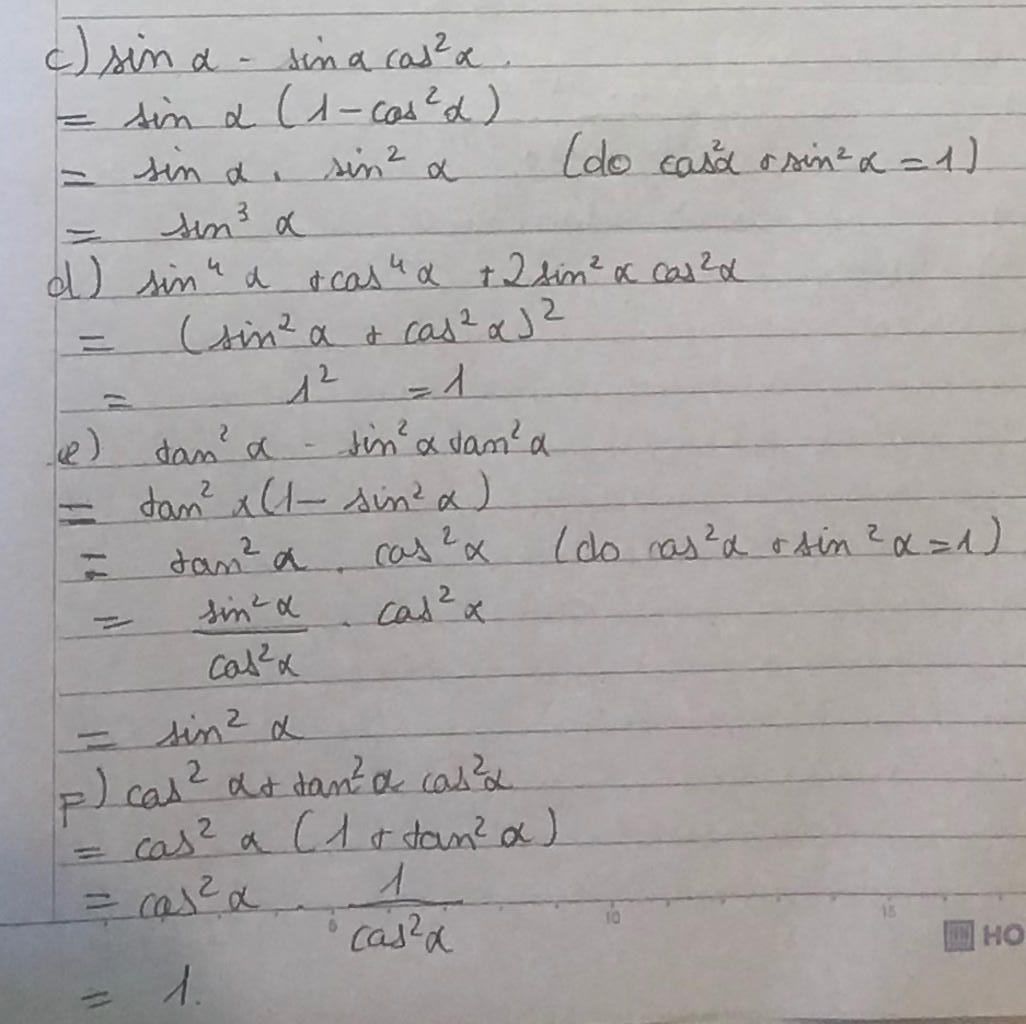 c) sin α - sin α cos²α.
= sin α (1 - cos²α)
= sin α . sin² α (do cos²α + sin²α = 1)
= sin³ α
d) sin⁴ α + cos⁴ α + 2 sin² α cos²α
= (sin² α + cos² α)²
= 1² = 1
e) tan² α - sin² α tan² α
= tan² α (1 - sin² α)
= tan² α . cos² α (do cos²α + sin²α = 1)
= sin²α / cos²α . cos² α
= sin² α
f) cos² α + tan² α cos²α
= cos² α (1 + tan² α)
= cos² α . 1 / cos²α
5 10 15
HO
= 1.